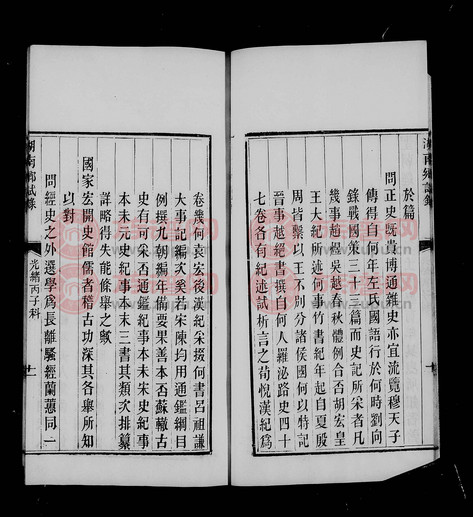 於篇
問正史既貴博通雜史亦宜流覽穆天子
傳得自何年左氏國語行於何時劉向
錄戰國策三十三篇而史記所采者凡
幾事趙煜吳越春秋體例合否胡宏皇
王大紀所述何事竹書紀年起自夏殷
周皆繫以王不別分諸侯國何以特記
晉事越絕書撰自何人羅泌路史四十
七卷各有紀述試析言之荀悅漢紀爲
卷幾何袁宏後漢紀采掇何書呂祖謙
大事記編次奚若宋陳均用通鑑綱目
例撰九朝編年備要果善本否蘇轍古
史有可采否通鑑紀事本末宋史紀事
本末元史紀事本末三書其類次排纂
詳略得失能條舉之歟
國家宏開史館儒者稽古功深其各舉所知
以對
問經史之外選學爲長離騷經蘭蕙同一
湖南鄉試錄
光緒丙子科
十一